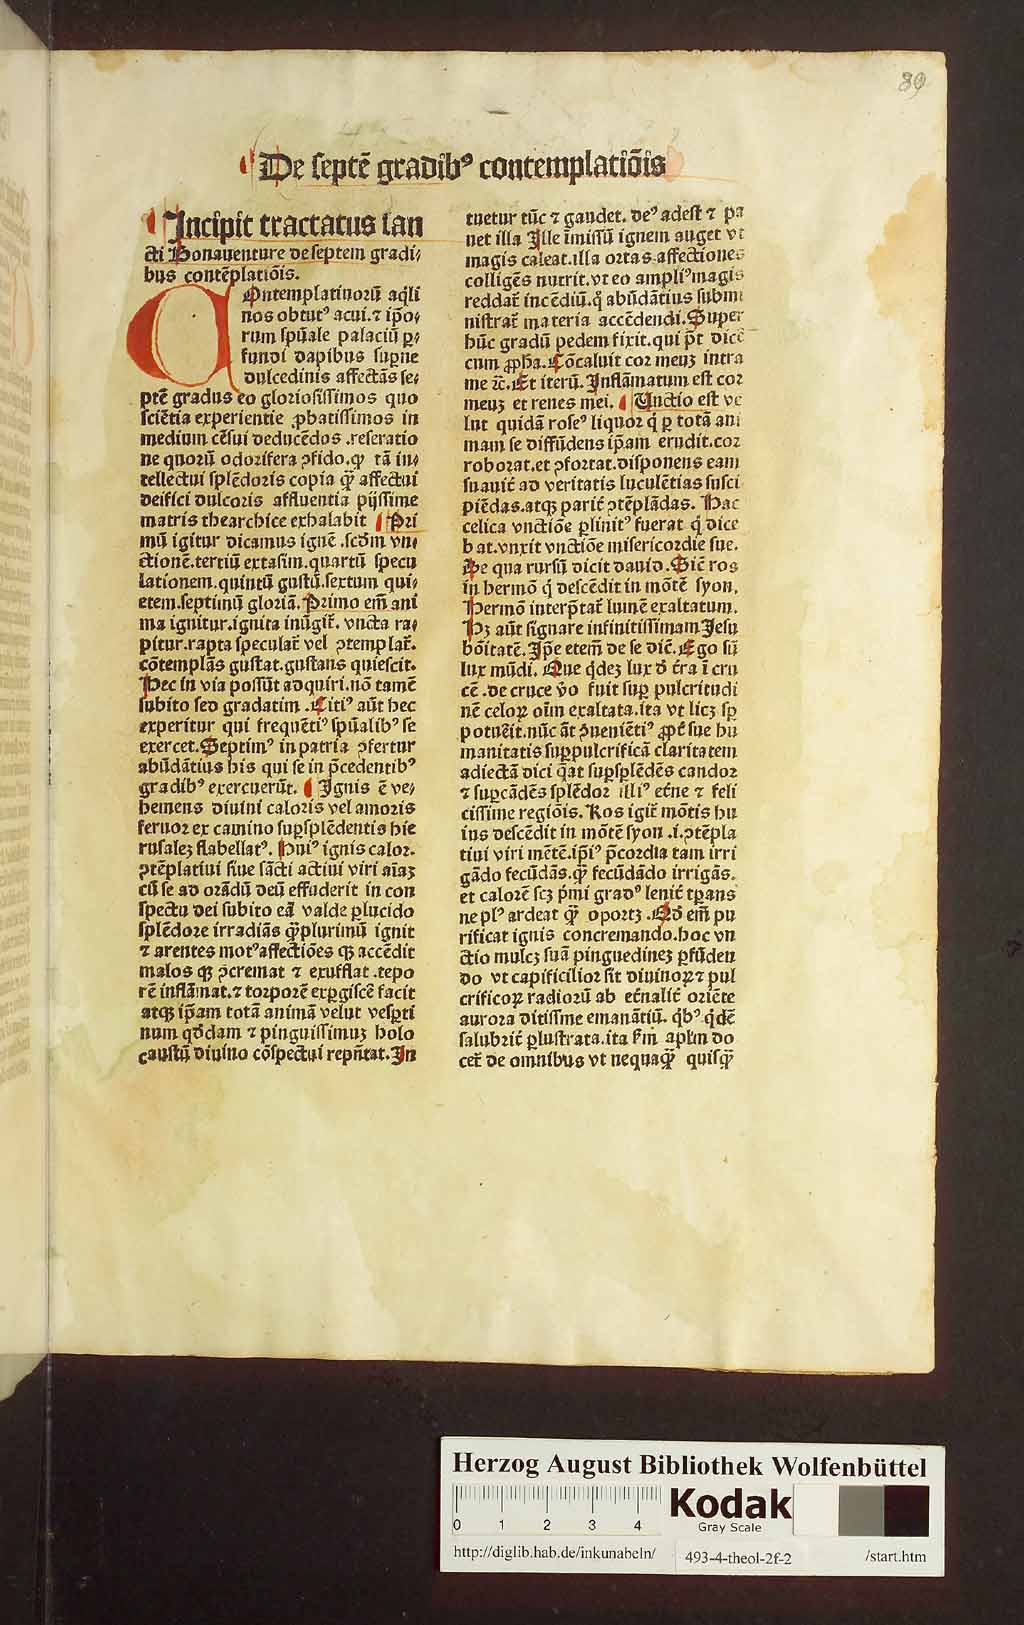 89
De septē gradibꝰ contemplatiōis
Incipit tractatus san
cti Bonauenture de septem gradi⸗
bus contēplatiōis.
COntemplatiuorū aq̄li
nos obtutꝰ acui.⁊ ip̄o⸗
rum spūale palaciū ꝑ⸗
fundi dapibus sup̄ne
dulcedinis affectās se⸗
ptē gradus eo gloriosissimos quo
sciētia experientie ꝓbatissimos in
medium cēsui deducēdos .reseratio
ne quorū odorifera ꝯfido.ꝙ tā in⸗
tellectui splēdoris copia q̄ȝ affectui
deifici dulcoris affluentia pijssime
matris thearchice exhalabit Pri
mū igitur dicamus ignē .scd̄m vn⸗
ctionē.tertiū extasim.quartū specu
lationem.quintū gustū.sextum qui⸗
etem.septimū gloriā.Primo em̄ ani
ma ignitur.ignita inūgit̄. vncta ra⸗
pitur.rapta speculat̄ vel ꝯtemplat̄.
cōtemplās gustat.gustans quiescit.
Hec in via possūt adquiri.nō tamē
subito sed gradatim .Citiꝰ aūt hec
experitur qui frequētiꝰ spūalibꝰ se
exercet.Septimꝰ in patria ꝯfertur
abūdātius his qui se in p̄cedentibꝰ
gradibꝰ exercuerūt. Ignis ē ve⸗
hemens diuini caloris vel amoris
feruor ex camino suꝑsplēdentis hie
rusaleȝ flabellatꝰ. Huiꝰ ignis calor.
ꝯtēplatiui siue sācti actiui viri aīaȝ
cū se ad orādū deū effuderit in con
spectu dei subito eā valde ꝑlucido
splēdore irradiās q̄ȝplurimū ignit
⁊ arentes motꝰ affectiōes qȝ accēdit
malos qȝ ꝯcremat ⁊ exufflat .tepo
rē inflāmat.⁊ torporē exꝑgiscē facit
atqȝ ip̄am totā animā velut vesꝑti
num qd̄dam ⁊ pinguissimuȝ holo
caustū diuino cōspectui repn̄tat.In
tuetur tūc ⁊ gaudet. deꝰ adest ⁊ pa
net illa Ille īmissū ignem auget vt
magis caleat.illa ortas affectiones
colligēs nutrit.vt eo ampliꝰ magis
reddat̄ incēdiū.q̊ abūdātius submi
nistrat̄ materia accēdendi.Super
hūc gradū pedem fixit.qui p̄t dicē
cum ꝓph̄a.Cōcaluit cor meuȝ intra
me ⁊c̄.Et iterū. Inflāmatum est cor
meuȝ et renes mei. Unctio est ve
lut quidā roseꝰ liquor q̇ ꝑ totā ani
mam se diffūdens ip̄am erudit.cor
roborat.et ꝯfortat.disponens eam
suauit̄ ad veritatis luculētias susci
piēdas.atqȝ parit̄ ꝯtēplādas. Hac
celica vnctiōe ꝑlinitꝰ fuerat q̇ dice
bat.vnxit vnctiōe misericordie sue.
De qua rursū dicit dauid .Sic̄ ros
in hermō q̇ descēdit in mōtē syon.
Hermō interp̄tat̄ lumē exaltatum.
Hȝ aūt signare infinitissimam Jesu
bōitatē. Ip̄e etem̄ de se dic̄. Ego sū
lux mūdi. Que q̇deȝ lux d̄ t̄ra ī cru
cē .de cruce v̊o fuit suꝑ pulcritudi
nē celoꝝ oīm exaltata.ita vt licȝ sꝑ
potuēit.nūc āt ꝯueniētiꝰ ꝓpt̄ sue hu
manitatis suꝑpulcrificā claritatem
adiectā dici q̄at suꝑsplēdēs candor
⁊ suꝑcādēs splēdor illiꝰ et̄ne ⁊ feli
cissime regiōis. Ros igit̄ mōtis hu
ius descēdit in mōtē syon .i.ꝯtēpla
tiui viri mētē.ip̄iꝰ p̄cordia tam irri
gādo fecūdās.q̄ȝ fecūdādo irrigās.
et calorē scȝ p̄mi gradꝰ lenit̄ tꝑans
ne plꝰ ardeat q̄ȝ oportȝ .Qd̄ em̄ pu
rificat ignis concremando.hoc vn
ctio mulcȝ suā pinguedineȝ ꝑfūden
do vt capificilior sit diuinoꝝ ⁊ pul
crificoꝝ radiorū ab et̄nalit̄ oriēte
aurora ditissime emanātiū. q̇bꝰ q̇dē
salubrit̄ ꝑlustrata.ita ẜm apl̄m do
cet̄ de omnibus vt nequaq̄ȝ quisq̄ȝ
Herzog August Bibliothek Wolfenbüttel
0 1 2 3 4
Kodak
Gray Scale
http://diglib.hab.de/inkunabeln/
493-4-theol-2f-2
/start.htm